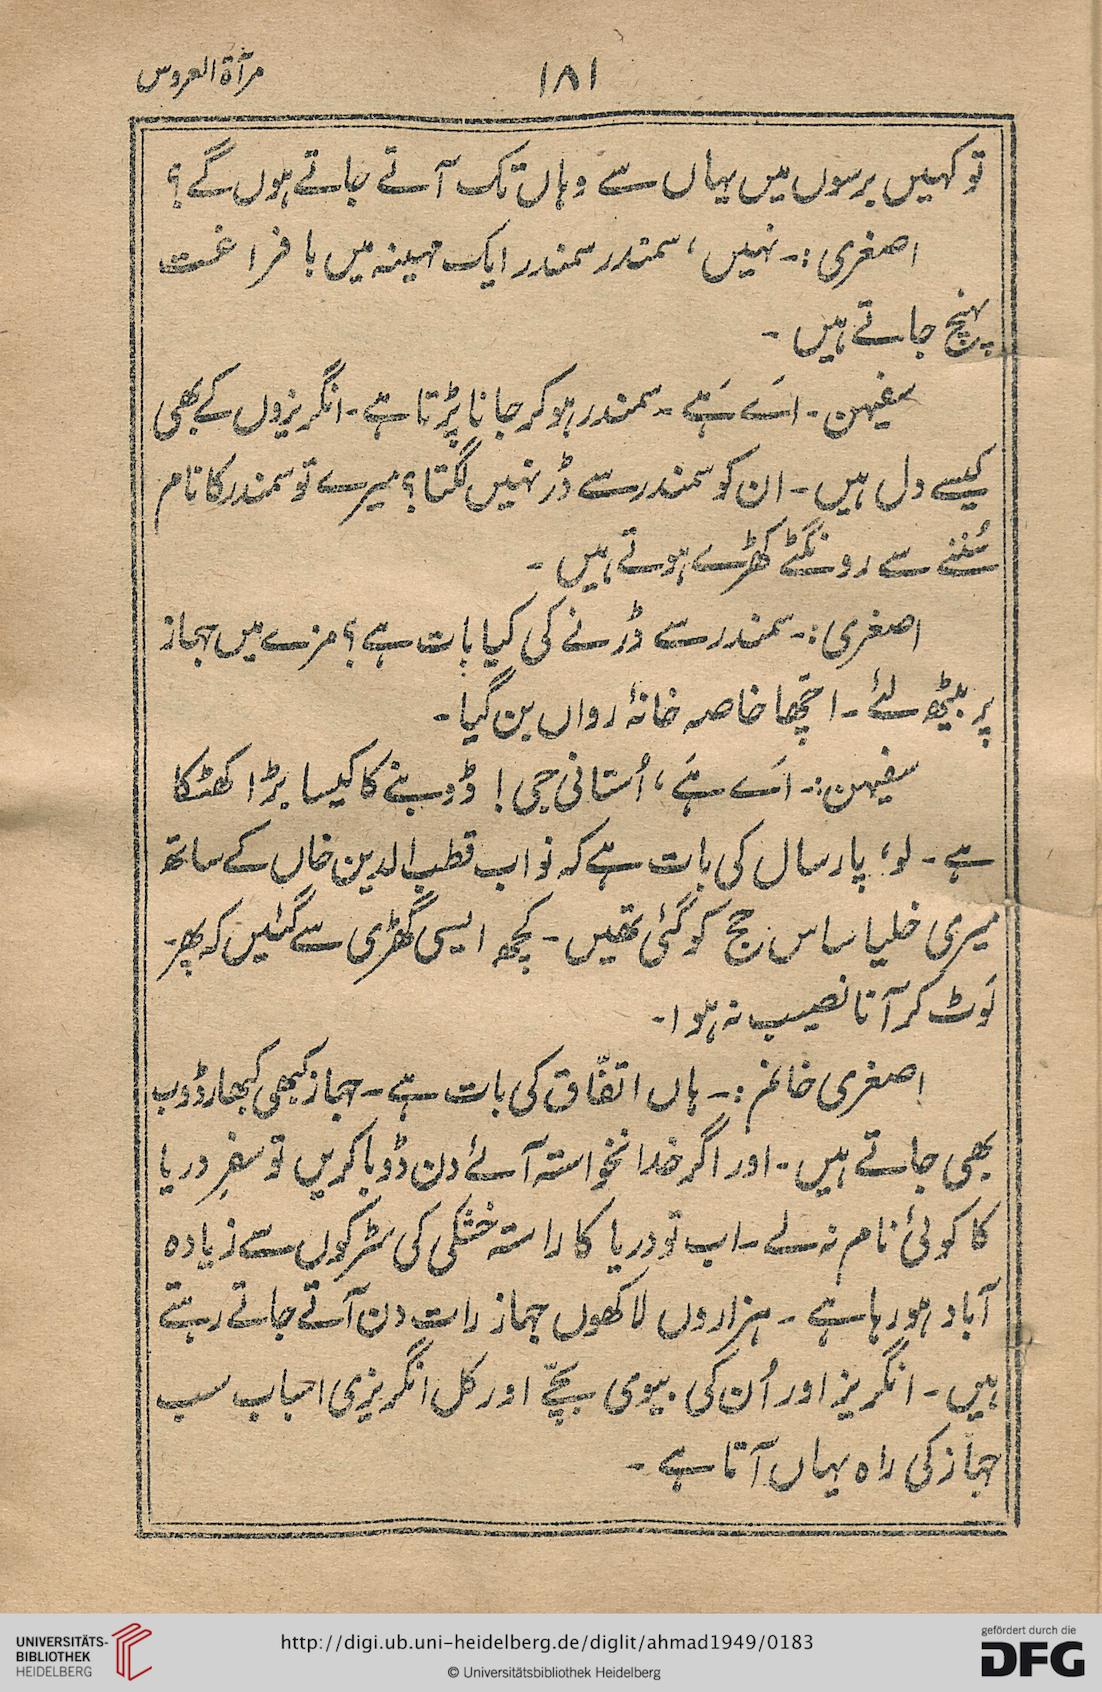 مرآۃ العروس
۱۸۱
تو کہیں برسوں میں یہاں سے وہاں تک آتے جاتے ہوں گے؟
اصغری :۔ نہیں، سمندر سمندر ایک مہینہ میں با فراغت
پہنچ جاتے ہیں ۔
سفیہن ۔ اَے ہَے ۔ سمندر ہو کر جانا پڑتا ہے ۔ انگریزوں کے بھی
کیسے دل ہیں ۔ ان کو سمندر سے ڈر نہیں لگتا؟ میرے تو سمندر کا نام
سُننے سے رونگٹے کھڑے ہوتے ہیں ۔
اصغری :۔ سمندر سے ڈرنے کی کیا بات ہے؟ مزے میں جہاز
پر بیٹھ لئے ۔ اچھّا خاصہ خانۂ رواں بن گیا ۔
سفیہن :۔ اَے ہَے، اُستانی جی! ڈوبنے کا کیسا بڑا کھٹکا
ہے ۔ لو، پارسال کی بات ہے کہ نواب قطب الدین خاں کے ساتھ
میری خلیا ساس حج کو گئی تھیں ۔ کچھ ایسی گھڑی سے گئیں کہ پھر
لَوٹ کر آنا نصیب نہ ہوا ۔
اصغری خانم :۔ ہاں اتفّاق کی بات ہے ۔ جہاز کبھی کبھار ڈوب
بھی جاتے ہیں ۔ اور اگر خدانخواستہ آئے دن ڈوبا کریں تو سفرِ دریا
کا کوئی نام نہ لے ۔ اب تو دریا کا راستہ خشکی کی سڑکوں سے زیادہ
آباد ہو رہا ہے ۔ ہزاروں لاکھوں جہاز رات دن آتے جاتے رہتے
ہیں ۔ انگریز اور اُن کی بیوی بچّے اور کل انگریزی اسباب سب
جہاز کی راہ یہاں آتا ہے ۔
UNIVERSITÄTS-
BIBLIOTHEK
HEIDELBERG
http://digi.ub.uni-heidelberg.de/diglit/ahmad1949/0183
© Universitätsbibliothek Heidelberg
gefördert durch die
DFG